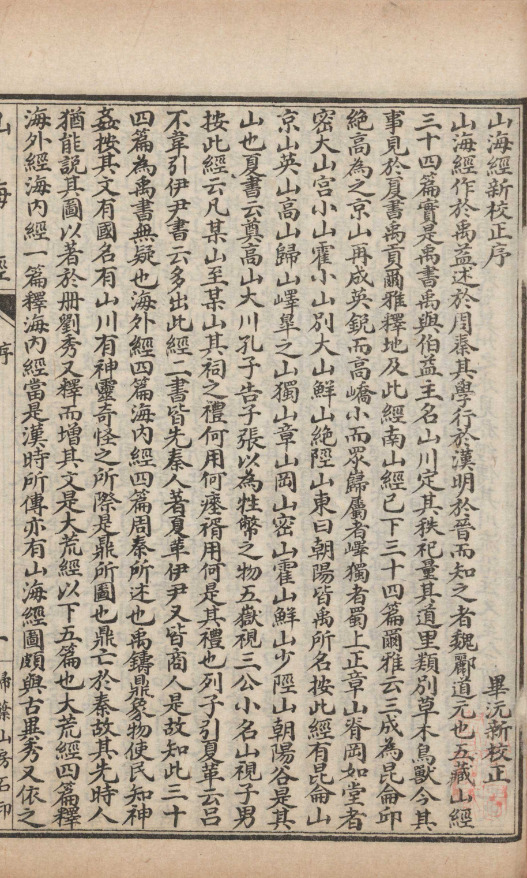 山海經新校正序
畢沅新校正
山海經作於禹益述於周秦其學行於漢明於晉而知之者魏酈道元也五藏山經
三十四篇實是禹書禹與伯益主名山川定其秩祀量其道里類別草木鳥獸今其
事見於夏書禹貢爾雅釋地及此經南山經已下三十四篇爾雅云三成為昆侖邱
絕高為之京山再成英銳而高嶠小而眾巋屬者嶧獨者蜀上正章山脊岡如堂者
密大山宮小山霍小山別大山鮮山絕陘山東曰朝陽皆禹所名按此經有昆侖山
京山英山高山歸山嶧皐之山獨山章山岡山密山霍山鮮山少陘山朝陽谷是其
山也夏書云奠高山大川孔子告子張以為牲幣之物五嶽視三公小名山視子男
按此經云凡某山至某山其祠之禮何用何瘞糈用何是其禮也列子引夏革云呂
不韋引伊尹書云多出此經二書皆先秦人著夏革伊尹又皆商人是故知此三十
四篇為禹書無疑也海外經四篇海內經四篇周秦所述也禹鑄鼎象物使民知神
姦按其文有國名有山川有神靈奇怪之所際是鼎所圖也鼎亡於秦故其先時人
猶能說其圖以著於冊劉秀又釋而增其文是大荒經以下五篇也大荒經四篇釋
海外經海內經一篇釋海內經當是漢時所傳亦有山海經圖頗與古異秀又依之
山海經
序
一
掃葉山房石印